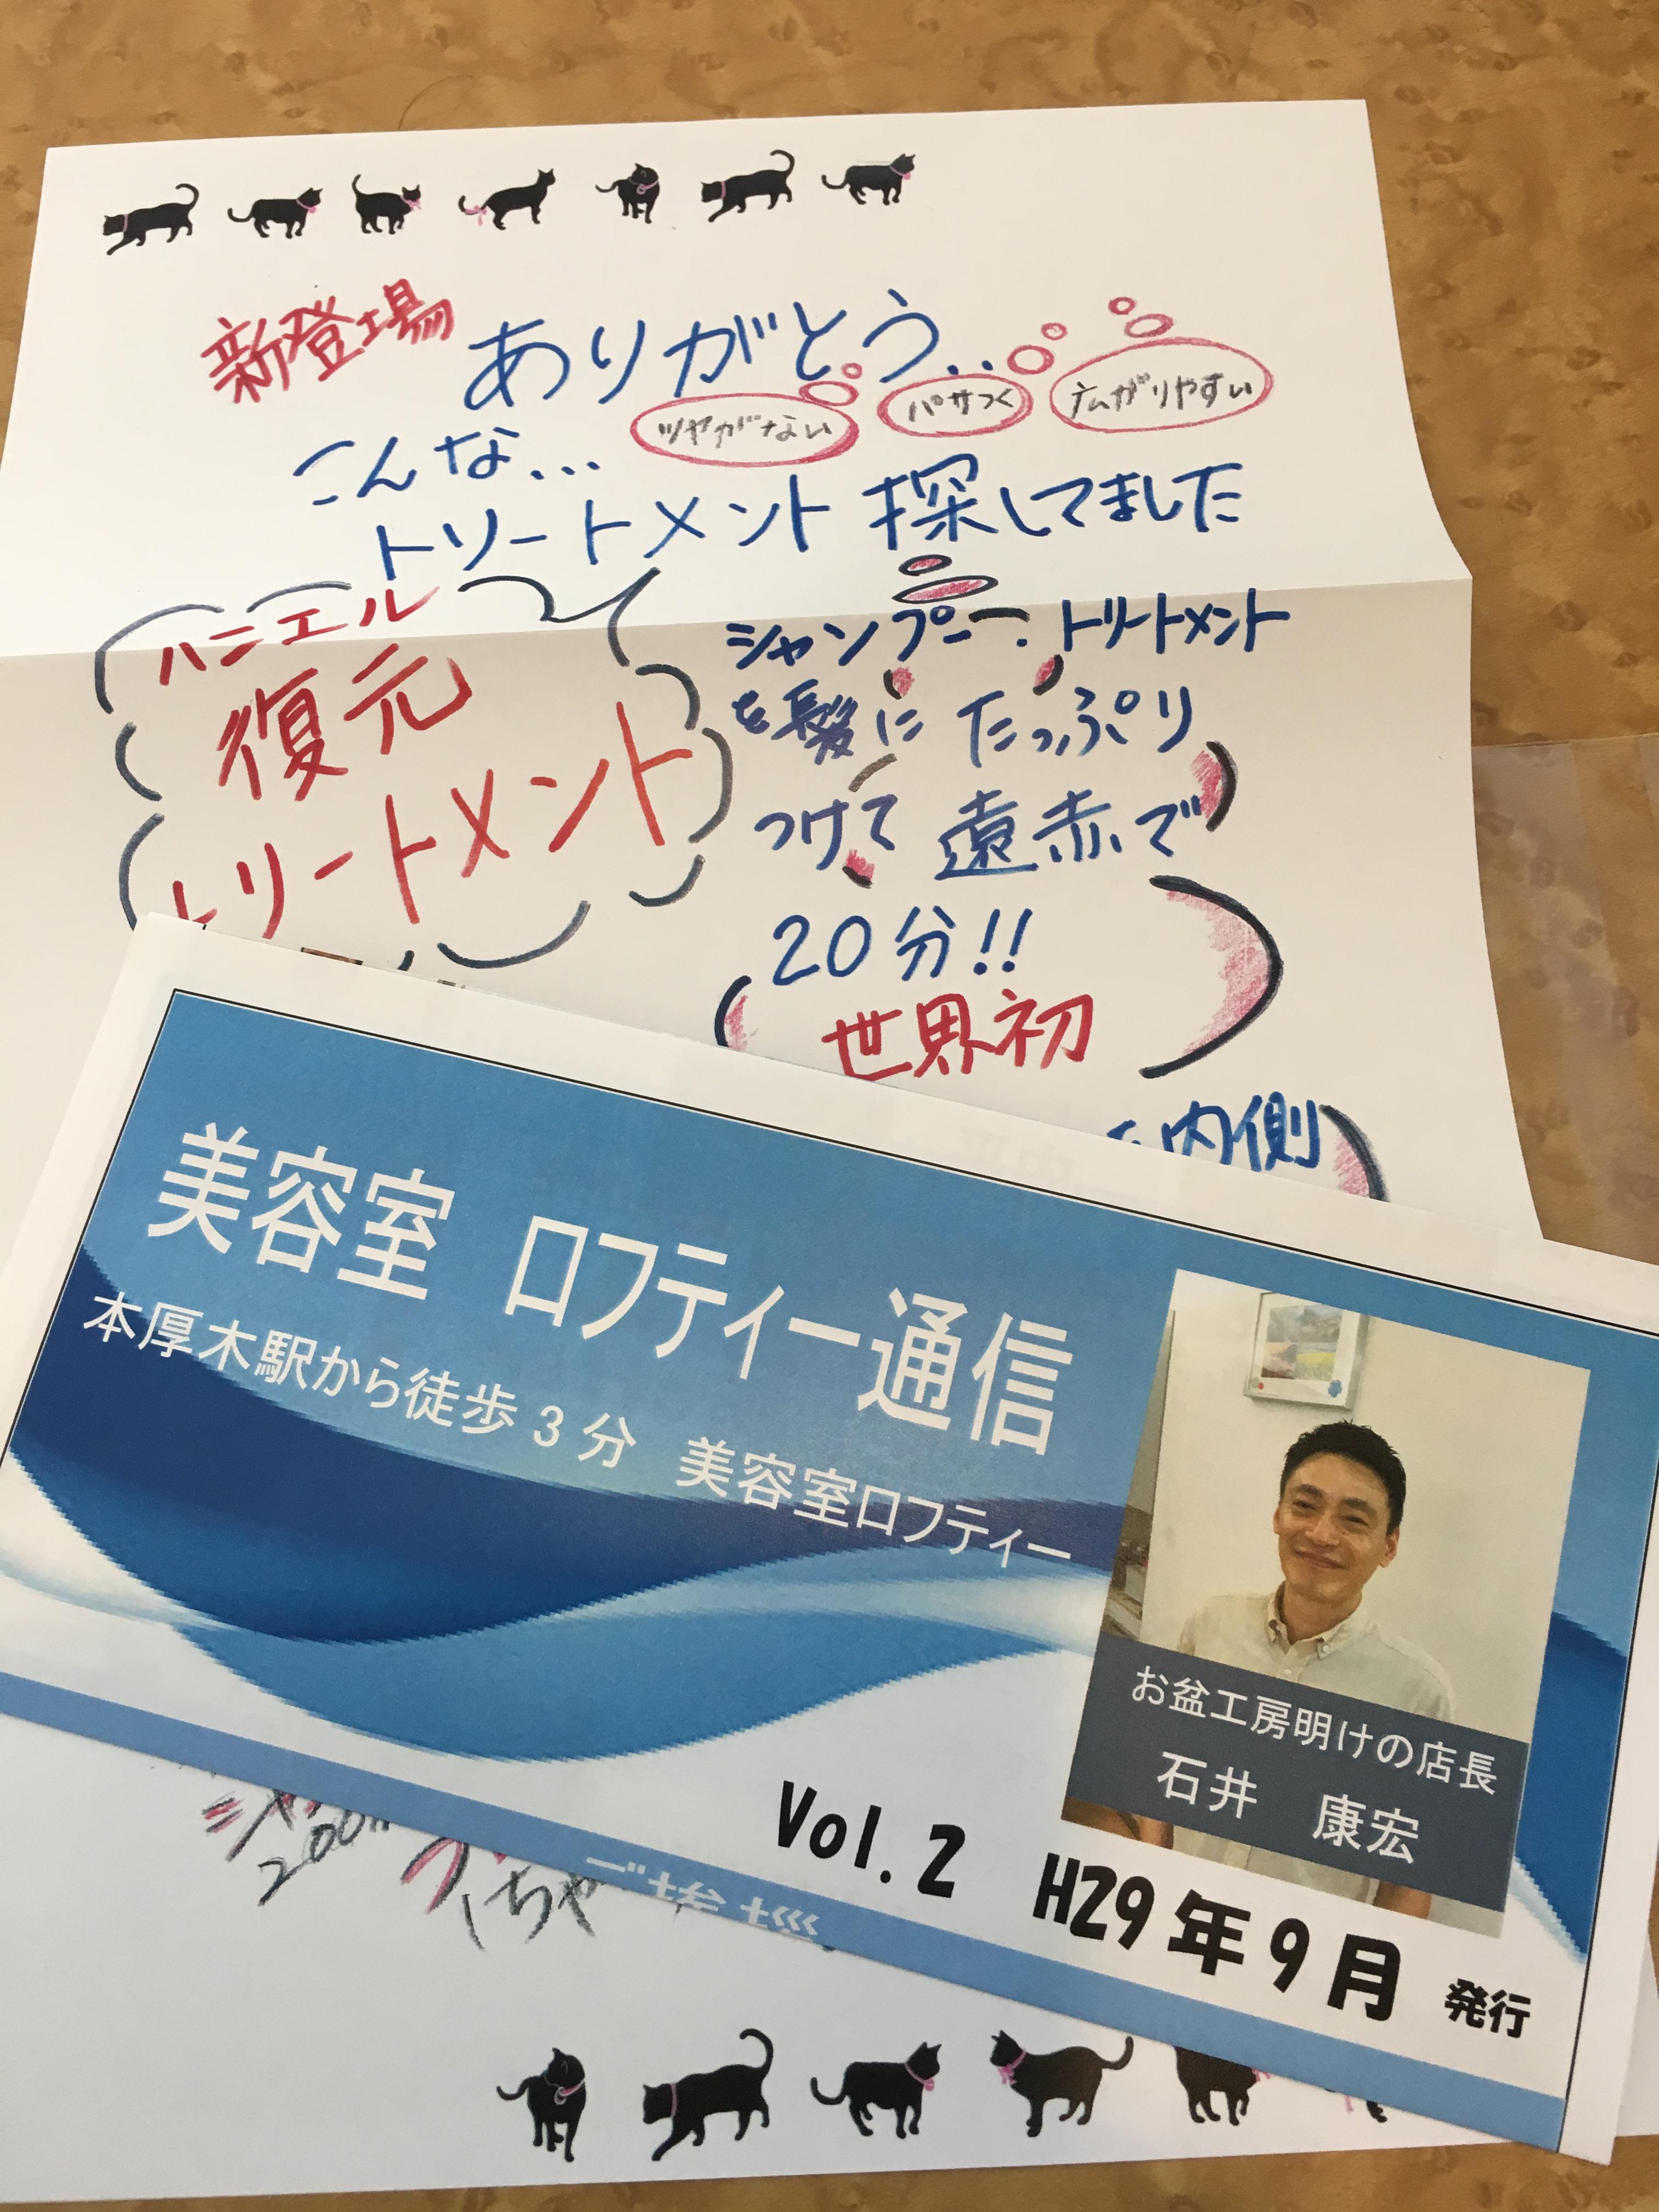 新登場
ありがとう..
ツヤがない
パサつく
広がりやすい
こんな...
トリートメント探してました
ハニエル
復元
トリートメント
シャンプー・トリートメント
を髪にたっぷり
つけて遠赤で
20分!!
世界初
内側
美容室 ロフティー通信
本厚木駅から徒歩3分 美容室ロフティー
お盆工房明けの店長
石井 康宏
Vol.2 H29年9月 発行